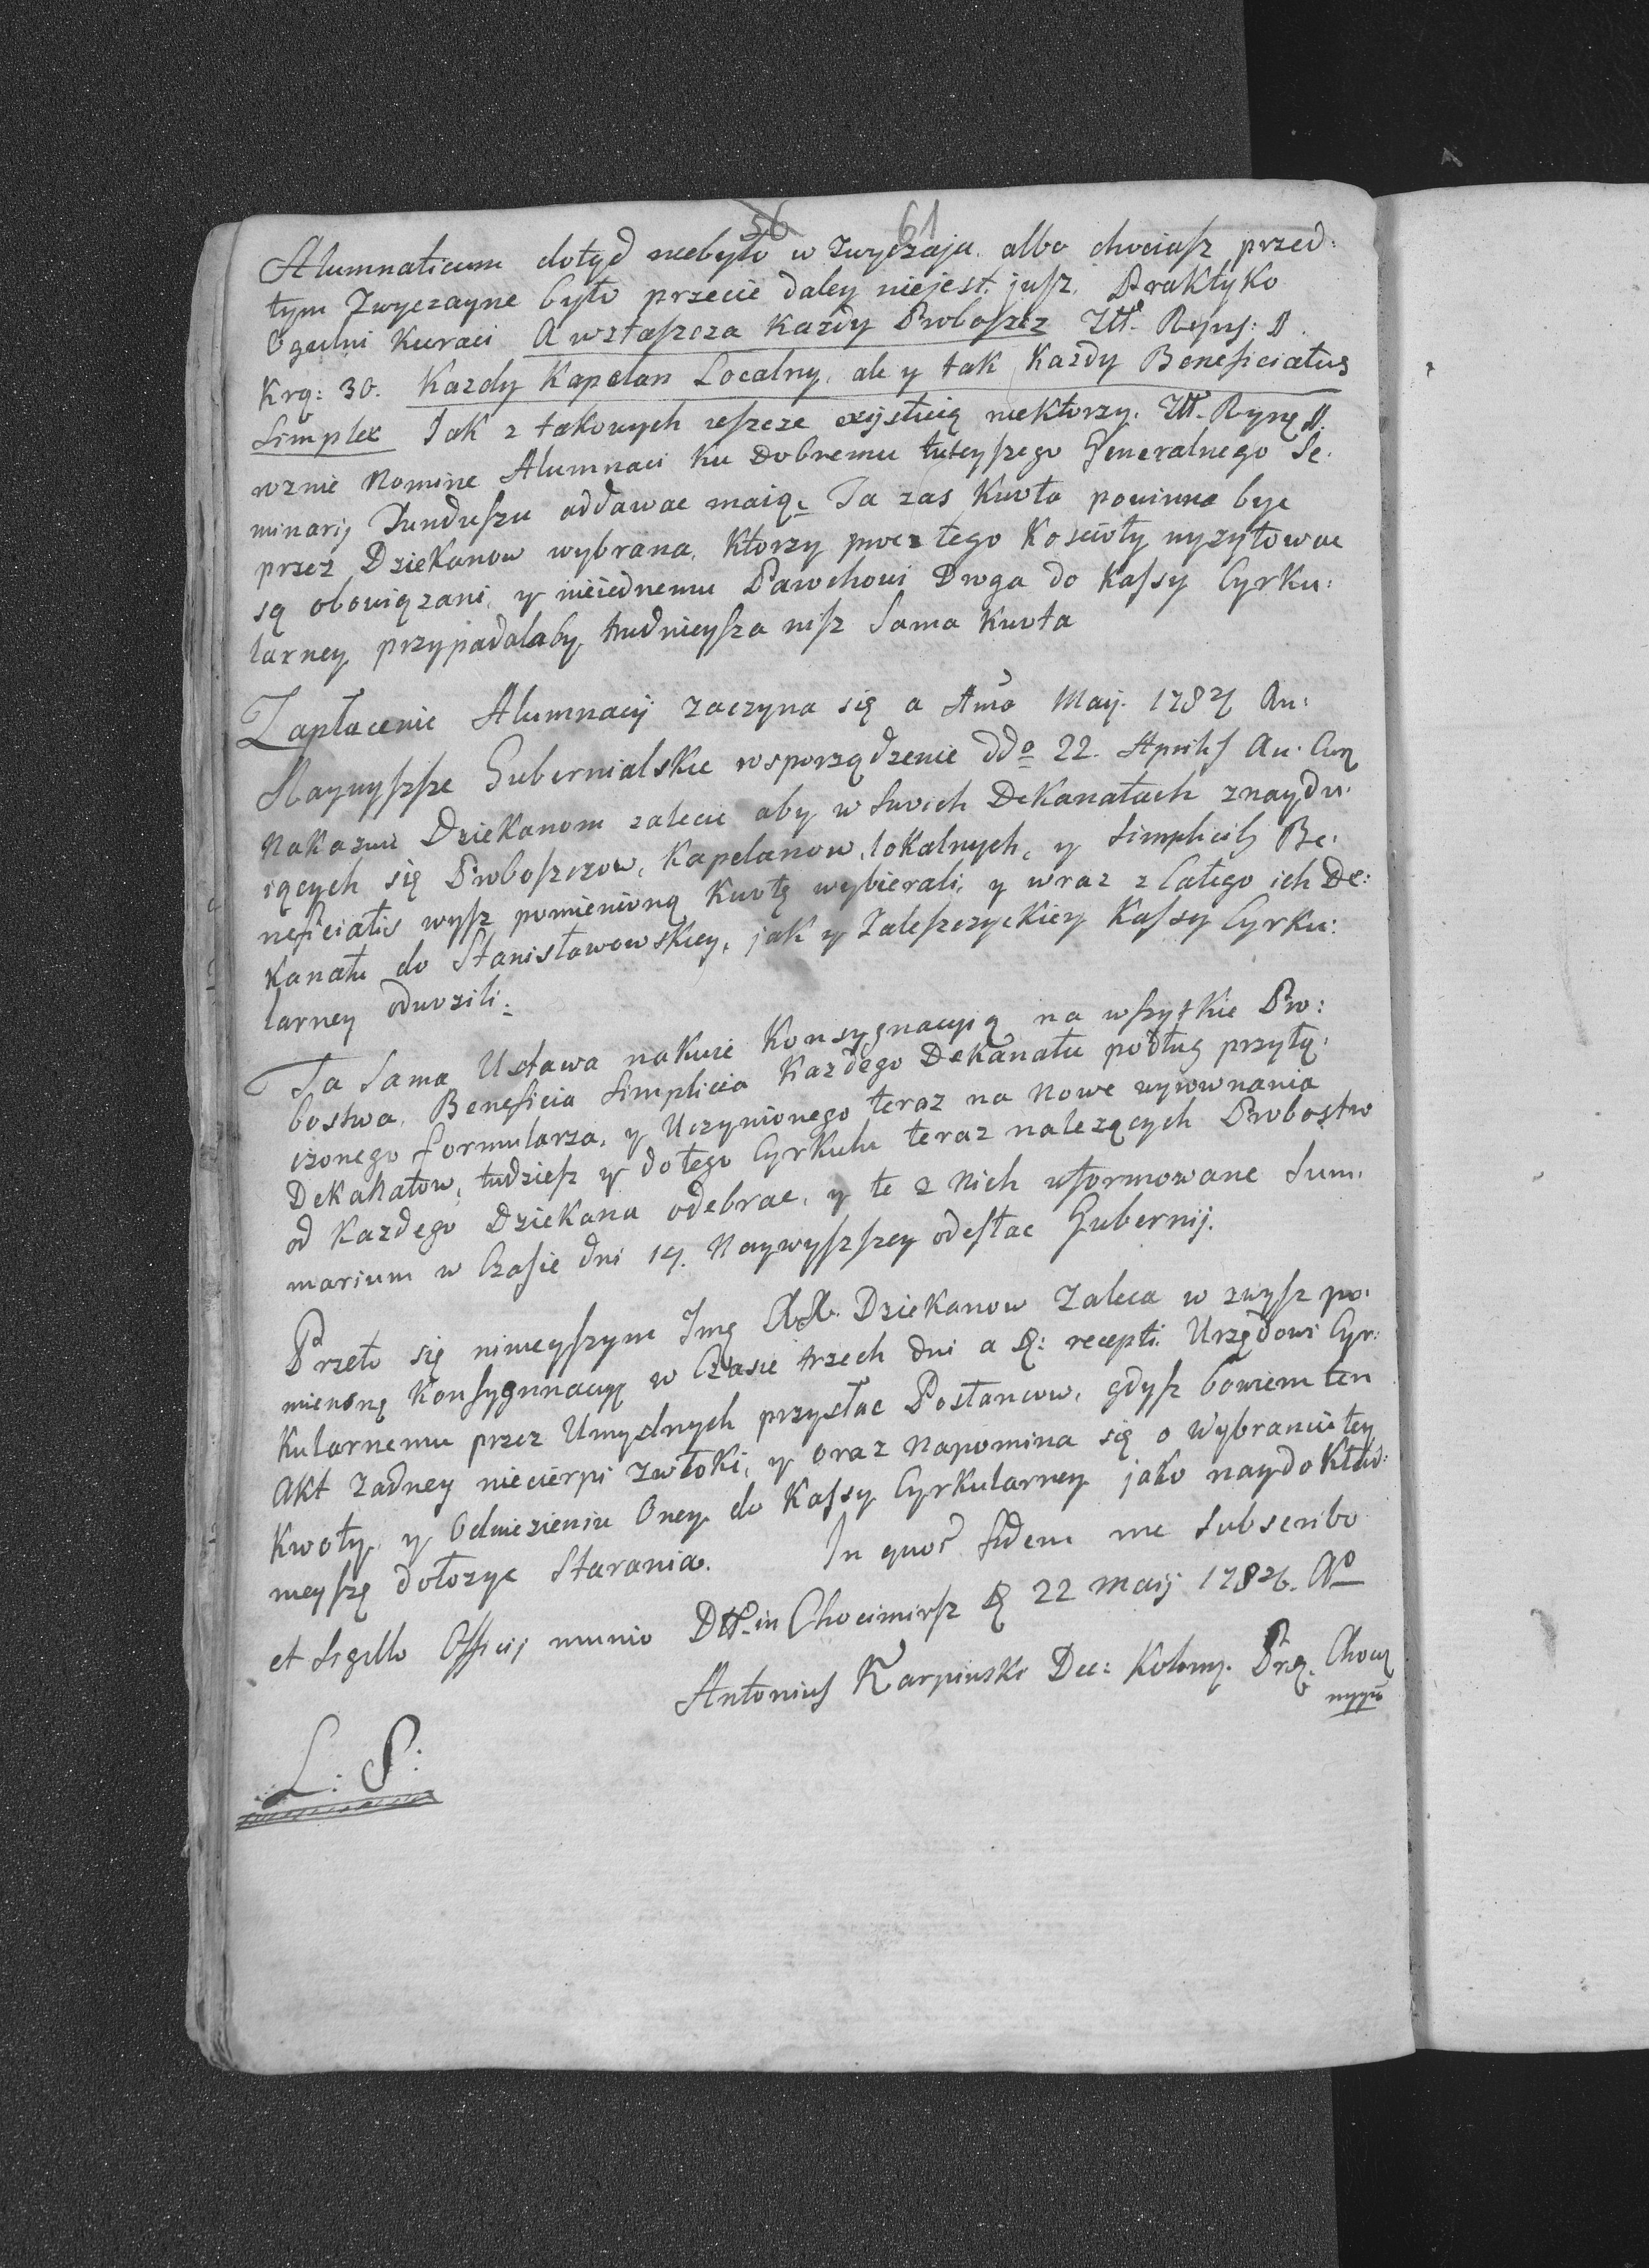 56 61
Alumnaticum dotyd niebyło w Zwyczaju albo chociasz przed:
tym Zwyczayne było przecie daley niejest jusz. Praktyko
Ogulni Kuraci A wzłaszcza Kazdy Proboszcz
Krą: 30. Kazdy Kapelan Localny, ale y tak Kazdy Beneficiatus
Simplex Jak z takowych jeszcze niektorzy.
wznie Nomine Alumnaci Ku Dobremu tuteyszego Generalnego Se:
minarij Funduszu oddawac maią. Ta zas Kwota powinna byc
przez Dziekanow wybrana, Ktorzy procz tego Koscioły wyzytowac
są obowiązani, y nieiednemu Parochowi Droga do Kassy Cyrku:
larney przypadalaby trudnieysza nisz Sama Kwota
Zapłacenie Alumnacij zaczyna się a Maij. An:
Naywyszsze Gubernialskie rosporządzenie ddo 22. Aprilis An. Cur
Nakazuie Dziekanom zalecic aby w Swoich Dekanatach znaydu:
iących się Proboszczow, Kapelanow lokalnych, y Simplicib Be:
neficiatis wysz pomienioną Kwotę wybierali, y wraz z Całego ich De:
Kanatu do Stanisławowskiey, jak y Zaleszczyckiey Kassy Cyrku:
larney odwozili.
Ta Sama Ustawa nakuie Konsygnacyią na wszytkie Pro:
bostwa, Beneficia Simplicia Kazdego Dekanatu podług przyłą:
czonego formularza, y Uczynionego teraz na Nowe wyrownania
Dekanatow, tudziesz y do tego Cyrkułu teraz nalezących Probostw
od Kazdego Dziekana odebrac, y te z Nich uformowane Sum:
marium w Czasie dni 14. Naywyszszey odesłac Gubernij.
Przeto się ninieyszym Img XX. Dziekanow Zaleca w zwysz po:
mienoną Konsygnnacyę w Czasie trzech dni a recepti Urzędowi Cyr:
Kularnemu przez Umyslnych przysłac Posłancow, gdysz bowiem ten
Akt Zadney niecierpi zwłoki, y oraz Napomina się o Wybranie tey
Kwoty y Odwiezieniu Oney do Kassy Cyrkularney jako naydokład:
nieyszę dołozyc Starania. In quor fidem me Subscribo
et Sigillo Officij munio Dtt. in Chocimirsz 22 Maij
Antonius Karpinski Dec: Kolomy. Chocz
mppr
L: S: